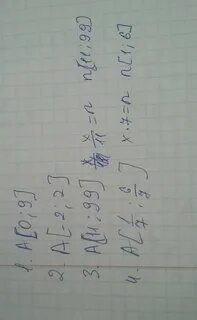 1. A[0;9]
2. A[-2;2]
3. A[11;99] x/11=n n[11;99]
4. A[1/7;6/7] x·7=n n[1;6]